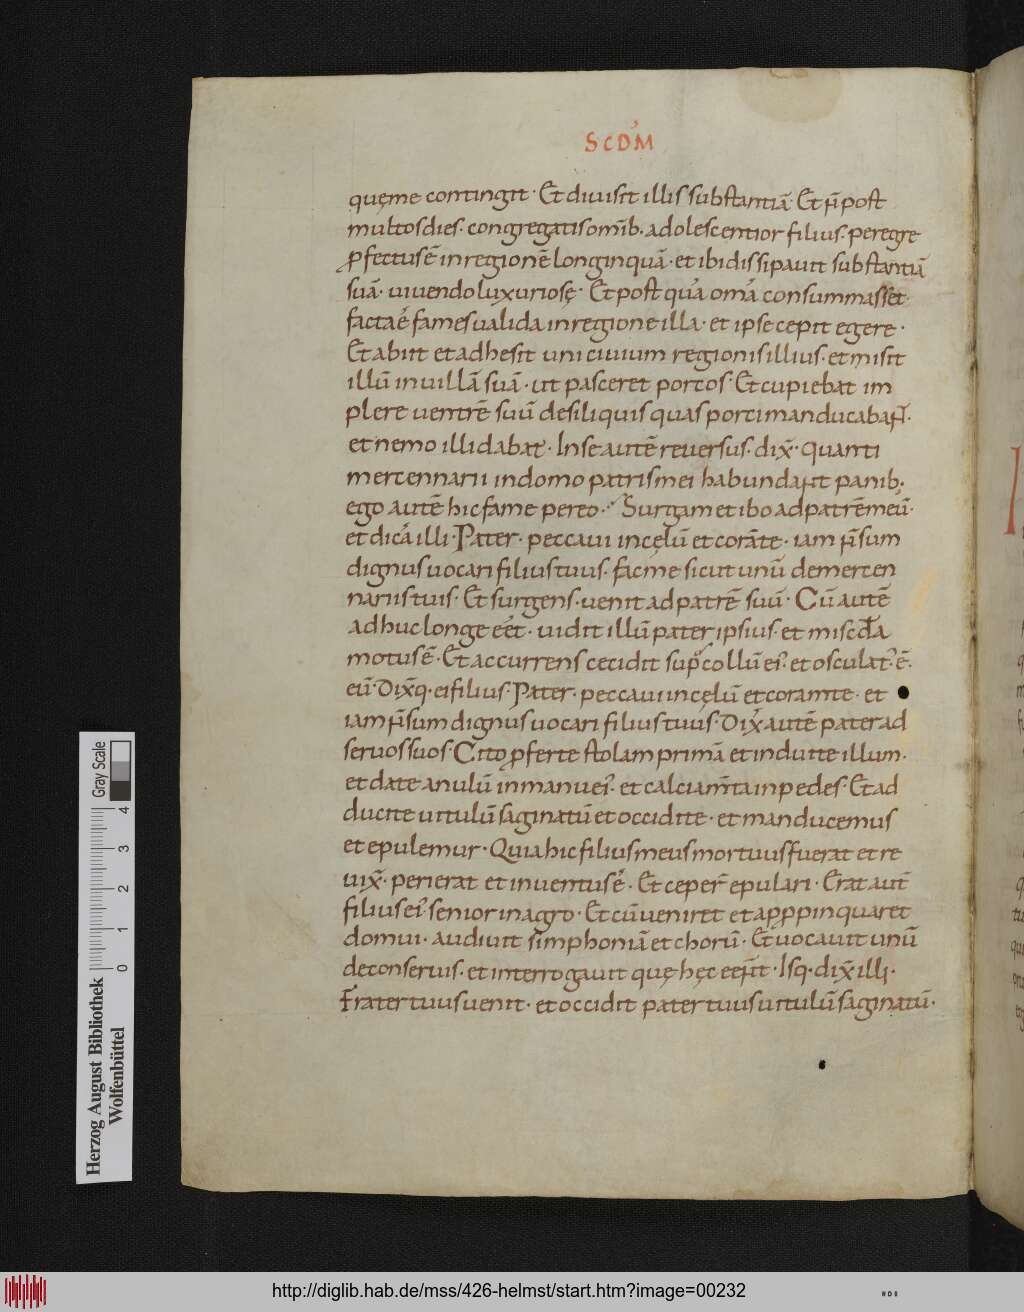 SCDM
quęme contingit · Et diuisit illis substantiā · Et ñ post
multos dies · congregatis omīb · adolescentior filius · peregre
pfectus ē in regionē longinquā · et ibi dissipauit substantiā
suā · uiuendo luxuriosę · Et post quā omā consummasset
facta ē fames ualida in regione illa · et ipse cepit egere ·
Et abiit et adhesit uni ciuium regionis illius · et misit
illū in uillā suā · ut pasceret porcos · Et cupiebat im
plere uentrē suū de siliquis quas porci manducabañ ·
et nemo illi dabat · In se autē reuersus · dix̄ · Quanti
mercennarii in domo patris mei habundant panib ·
ego autē hic fame pereo · Surgam et ibo ad patrē meū ·
et dicā illi · Pater · peccaui in cęlū et corā te · iam ñ sum
dignus uocari filius tuus · fac me sicut unū de mercen
nariis tuis · Et surgens · uenit ad patrē suū · Cū autē
adhuc longe eēt · uidit illū pater ipsius · et miscd̄a
motus ē · Et accurrens cecidit sup collū ei · et osculat ē ·
eū · Dix̄q · ei filius · Pater · peccaui in cęlū et coram te · et
iam ñ sum dignus uocari filius tuus · Dix̄ autē pater ad
seruos suos · Cito pferte stolam primā et induite illum ·
et date anulū in manu ei · et calciam̄ta in pedes · Et ad
ducite uitulū saginatū et occidite · et manducemus
et epulemur · Quia hic filius meus mortuus fuerat et re
uix̄ · perierat et inuentus ē · Et ceper̄ epulari · Erat aut̄
filius ei senior in agro · Et cū ueniret et appinquaret
domui · audiuit simphoniā et chorū · Et uocauit unū
de conseruis · et interrogauit quę hęc eēnt · Isq · dix̄ illi ·
Frater tuus uenit · et occidit pater tuus uitulū saginatū ·
Herzog August Bibliothek
Wolfenbüttel
Gray Scale
0 1 2 3 4
http://diglib.hab.de/mss/426-helmst/start.htm?image=00232